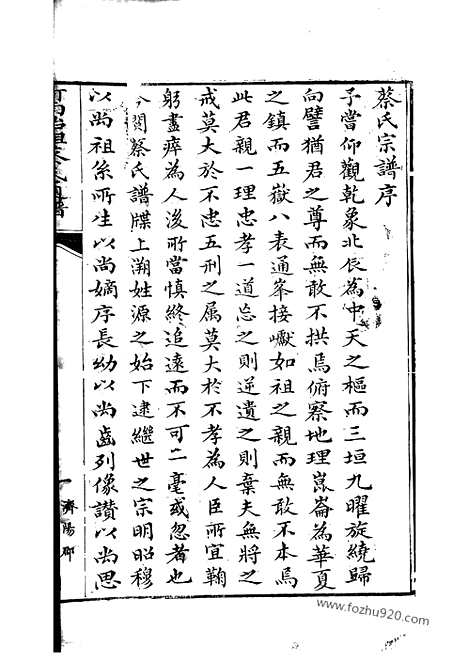 蔡氏宗譜序
予嘗仰觀乾象北辰為中天之樞而三垣九曜旋繞歸
向譬猶君之尊而無敢不拱焉俯察地理崑崙為華夏
之鎮而五嶽八表通峯接巘如祖之親而無敢不本焉
此君親一理忠孝一道忘之則逆遺之則棄夫無將之
戒莫大於不忠五刑之属莫大於不孝為人臣所宜鞠
躬盡瘁為人後所當慎終追遠而不可一毫或忽者也
今閱蔡氏譜牒上溯姓源之始下逮繼世之宗明昭穆
以尚祖系所生以尚嫡序長幼以尚齒列像讚以尚思
一
濟陽郡
www.fozhu920.com